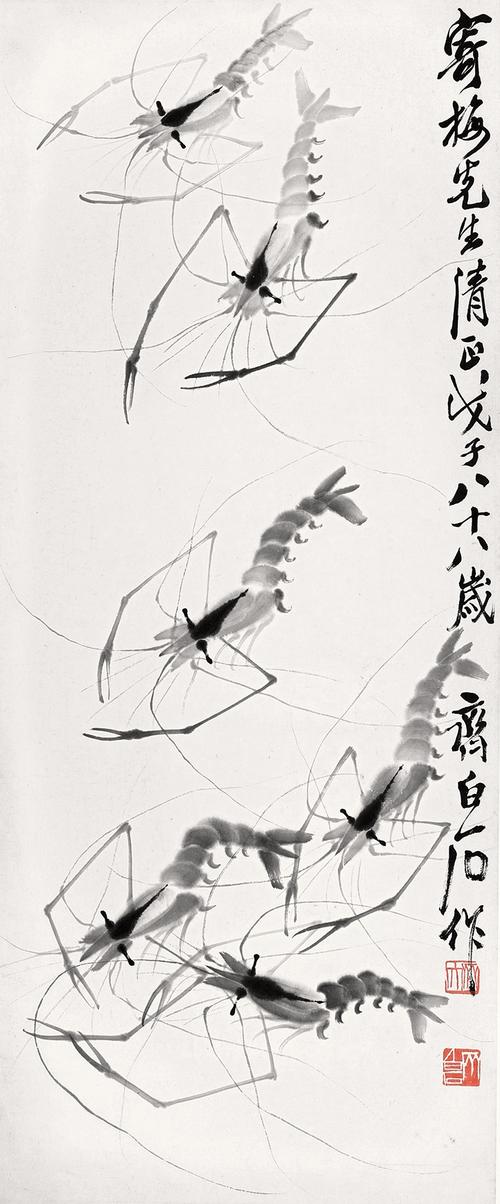 寄梅先生清正戊子八十八歲
齊白石作